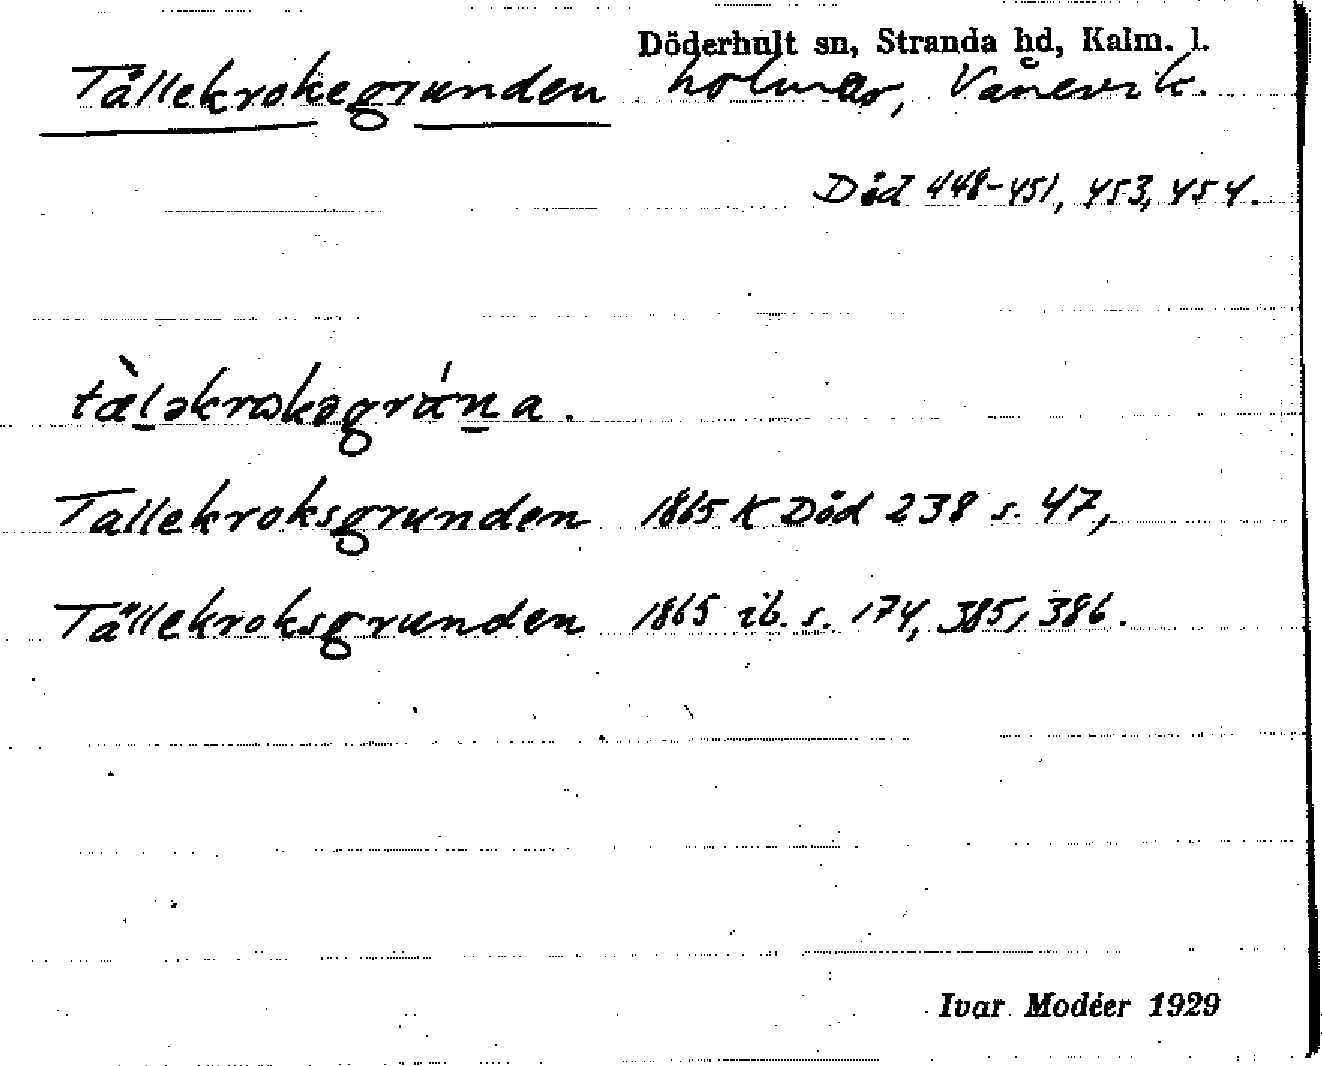 Döderhult sn, Stranda hd, Kalm. l.
Tällekrokegrunden holmar, Vånevik.
Död 448-451, 453, 454.
tæ̀ləkrokəgrúna.
Tallekroksgrunden 1865 K Död 238 s. 47,
Tällekroksgrunden 1865 ib. s. 174, 385, 386.
Ivar Modéer 1929